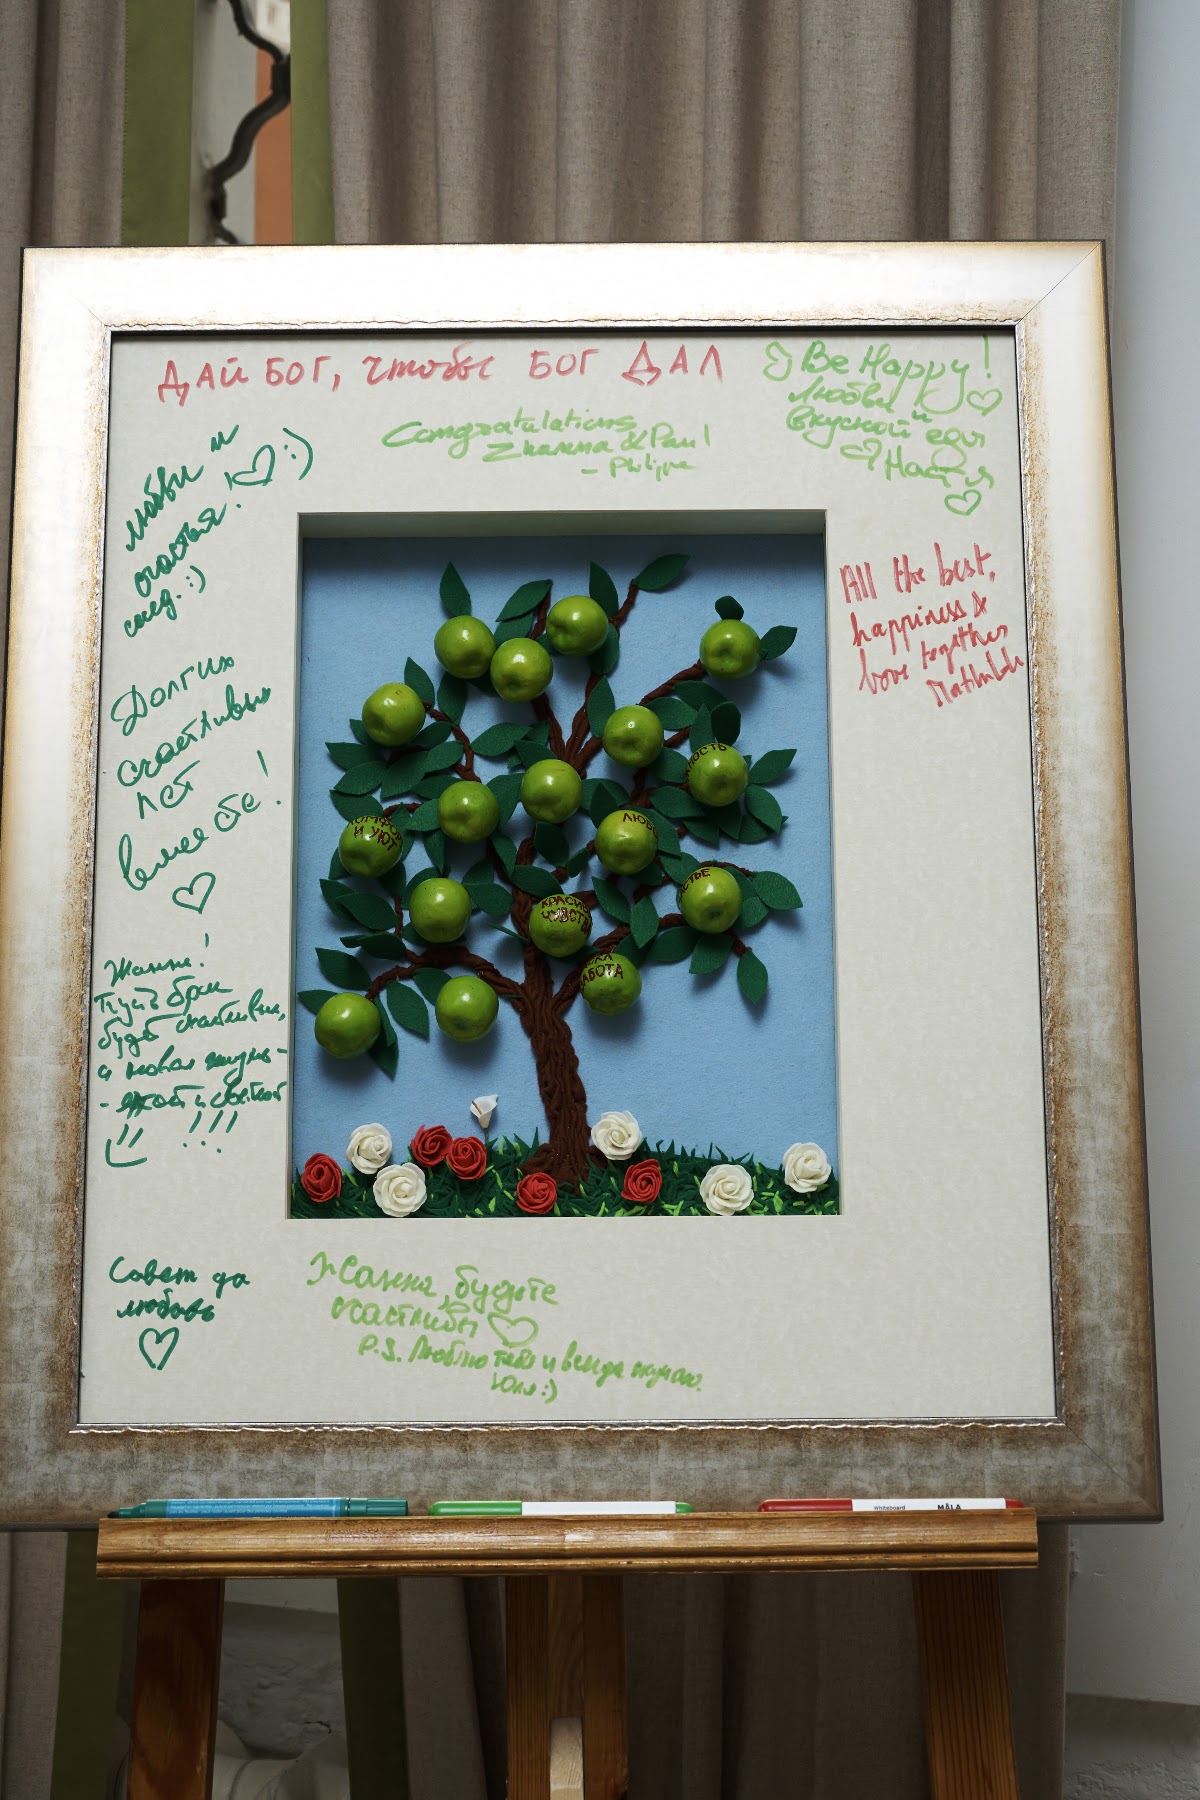 ДАЙ БОГ, чтобы БОГ ДАЛ
Be Happy!
Любви и
вкусной еды
Настя
Congratulations,
Zhanna & Paul
- Philippe
любви и
счастья!
:)
след. :)
All the best,
happiness &
love together
Mathilde
Долгих
счастливых
лет
вместе!
Жанна!
Пусть брак
будет счастливым,
а новая жизнь -
!!!
Совет да
любовь
Жанна, будьте
счастливы
P.S. Люблю тебя и всегда
Юля :)
КОМФОРТ
И УЮТ
НОСТЬ
ЛЮБО
СТЬЕ
КРАСИВ
ЧУВСТВ
СКА
ЗАБОТА
Whiteboard MÅLA